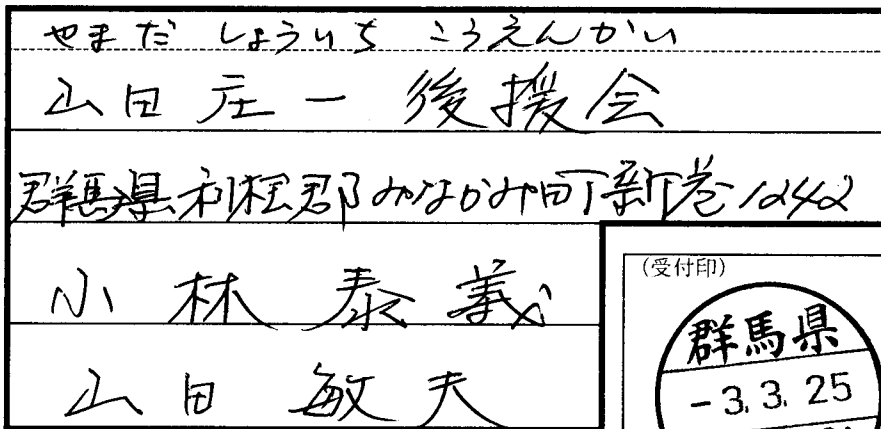 やまだ しょういち こうえんかい
山田庄一後援会
群馬県利根郡みなかみ町新巻1242
小林泰義
山田敏夫
(受付印)
群馬県
-3.3.25